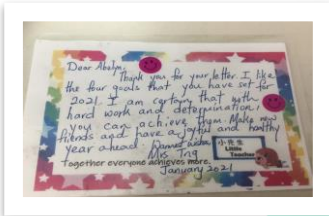 Dear Abelyn,
Thank you for your letter. I like
the four goals that you have set for
2021. I am certain that with
hard work and determination,
you can achieve them. Make new
friends and have a joyful and healthy
year ahead.
小先生
Little
Teacher
Mrs Tng
together everyone achieves more.
January 2021